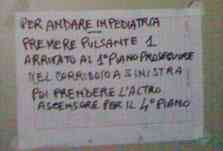 PER ANDARE IN PEDIATRIA
PREMERE PULSANTE 1
ARRIVATO AL 1° PIANO PROSEGUIRE
NEL CORRIDOIO A SINISTRA
POI PRENDERE L'ALTRO
ASCENSORE PER IL 4° PIANO